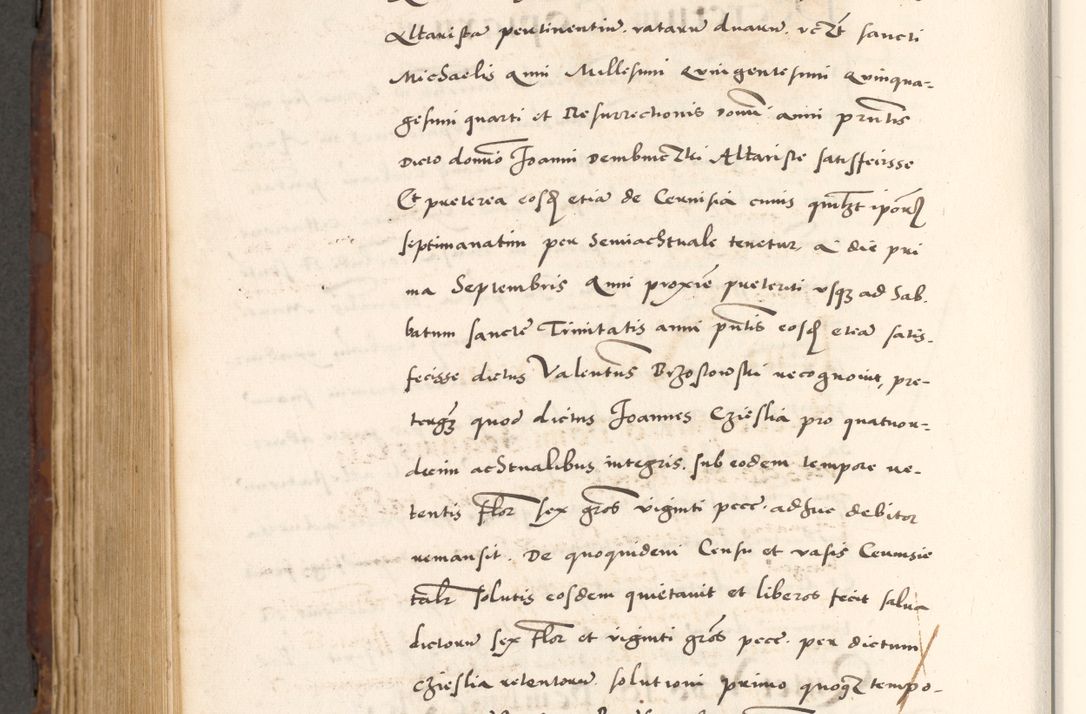 Altarista pertinentiu rataru duaru vczt sancti
Michaelis Anni Millesimi Quingentesimi Quinqua-
gesimi quarti et Resurrectionis Domi anni prntis
Dicto domio Joanni Dembinczki Altariste satisfecisse
Et preterea eosd etia de Cervisia cuius quilbt ipord
septimanatim per Semiachtuale tenetur, a die pri
ma Septembris Anni proxie preteriti vsqz ad Sab.
batum sancte Trinitatis anni pntis eosd etia satis.
fecisse dictus Valentus Brzostowski recognouit, pre-
tergz quod dictus Joannes Czieslia pro quatuor-
decim achtualibus integris. sub eodem tempore re-
tentis flor sex gros viginti pece. adhuc debitor
remansit. De quoquidem Censu et vasis Ceruisie
talr solutis eosdem quietauit et liberos fecit salua
dictoru sex flor et viginti gros pece. per dictum
Czieslia retentoru. solutioni primo quoqz tempo-